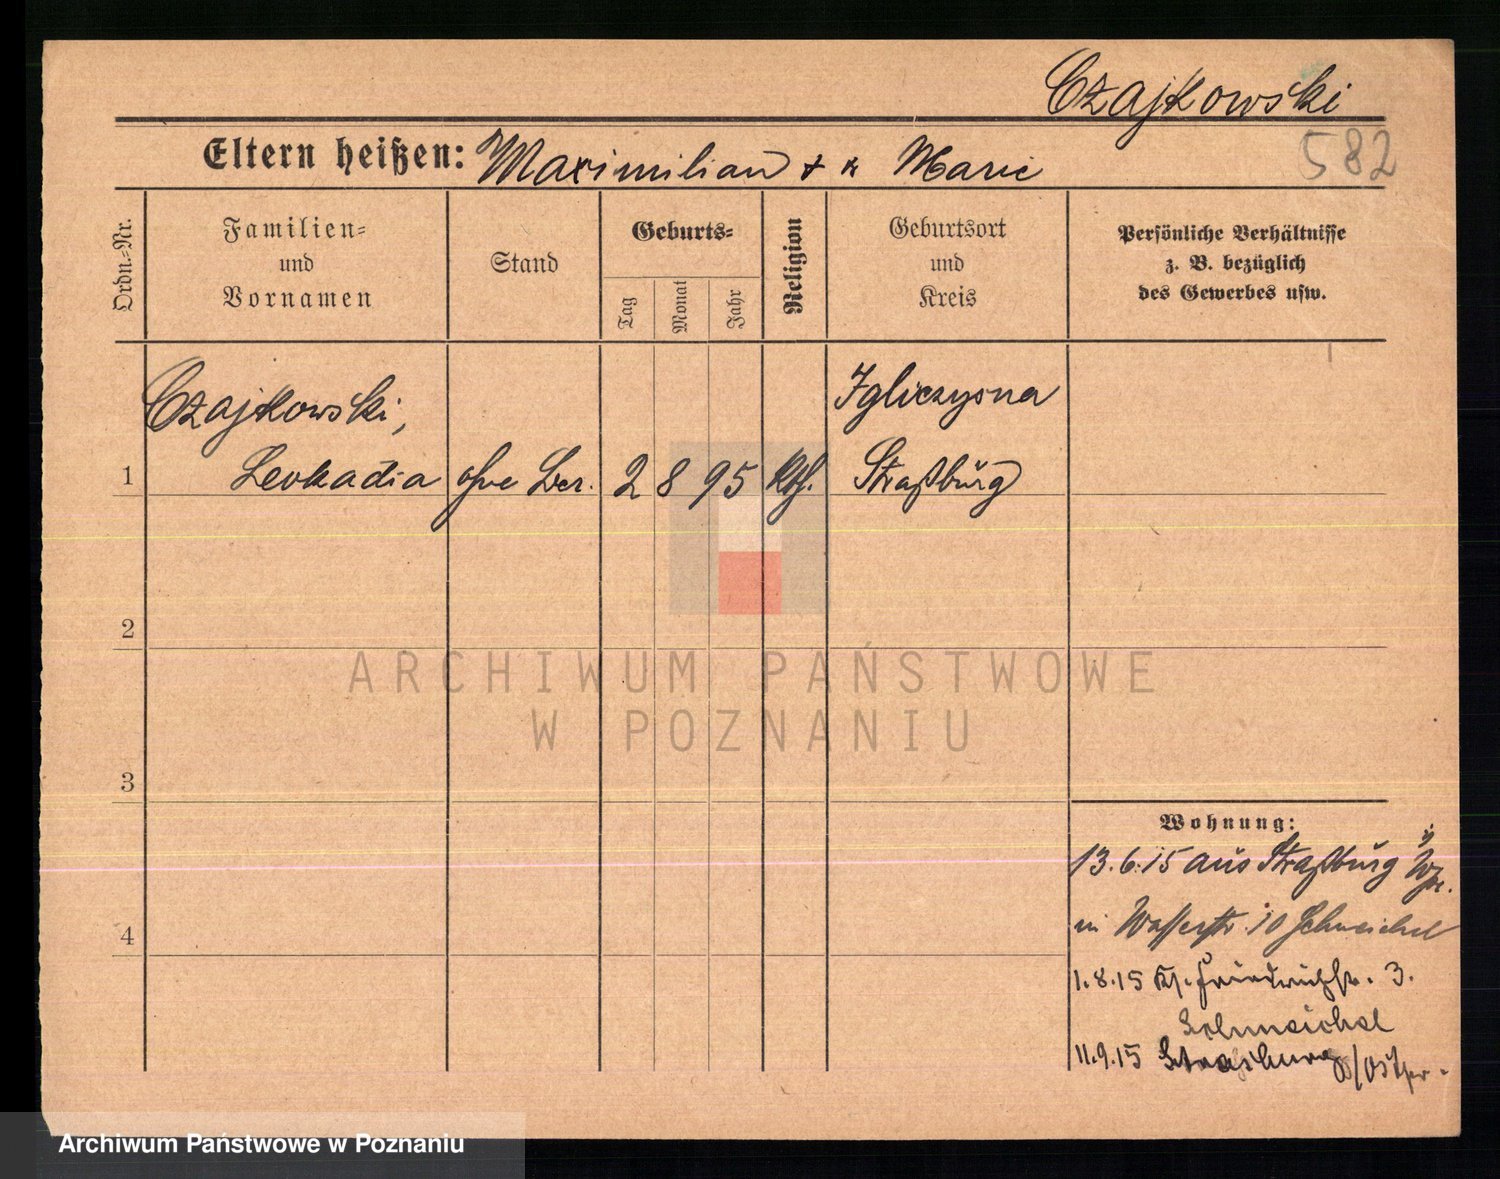 Czajkowski
582
Eltern heißen: Maximilian + u Marie
Ordn.-Nr.
Familien-
und
Vornamen
Stand
Geburts-
Tag
Monat
Jahr
Religion
Geburtsort
und
Kreis
Persönliche Verhältnisse
z. B. bezüglich
des Gewerbes usw.
Czajkowski,
Igliczysna
1
Leokadia ohne Ber. 2 8 95 kth. Straßburg
2
3
4
Wohnung:
13.6.15 aus Straßburg Wpr.
in Wasserstr. 10 Schmeichel
1.8.15 Kl. Friedrichstr. 3.
Schmeichel
11.9.15 Strasburg /Ostpr.
ARCHIWUM PAŃSTWOWE
W POZNANIU
Archiwum Państwowe w Poznaniu